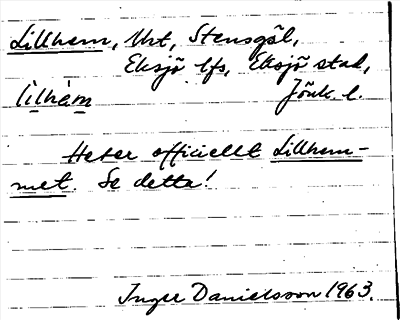 Lillhem, Uht, Stensgöl,
Eksjö lfs, Eksjö stad,
lìlhàm Jönk. l.
Heter officiellt Lillhem-
met. Se detta!
Inger Danielsson 1963.